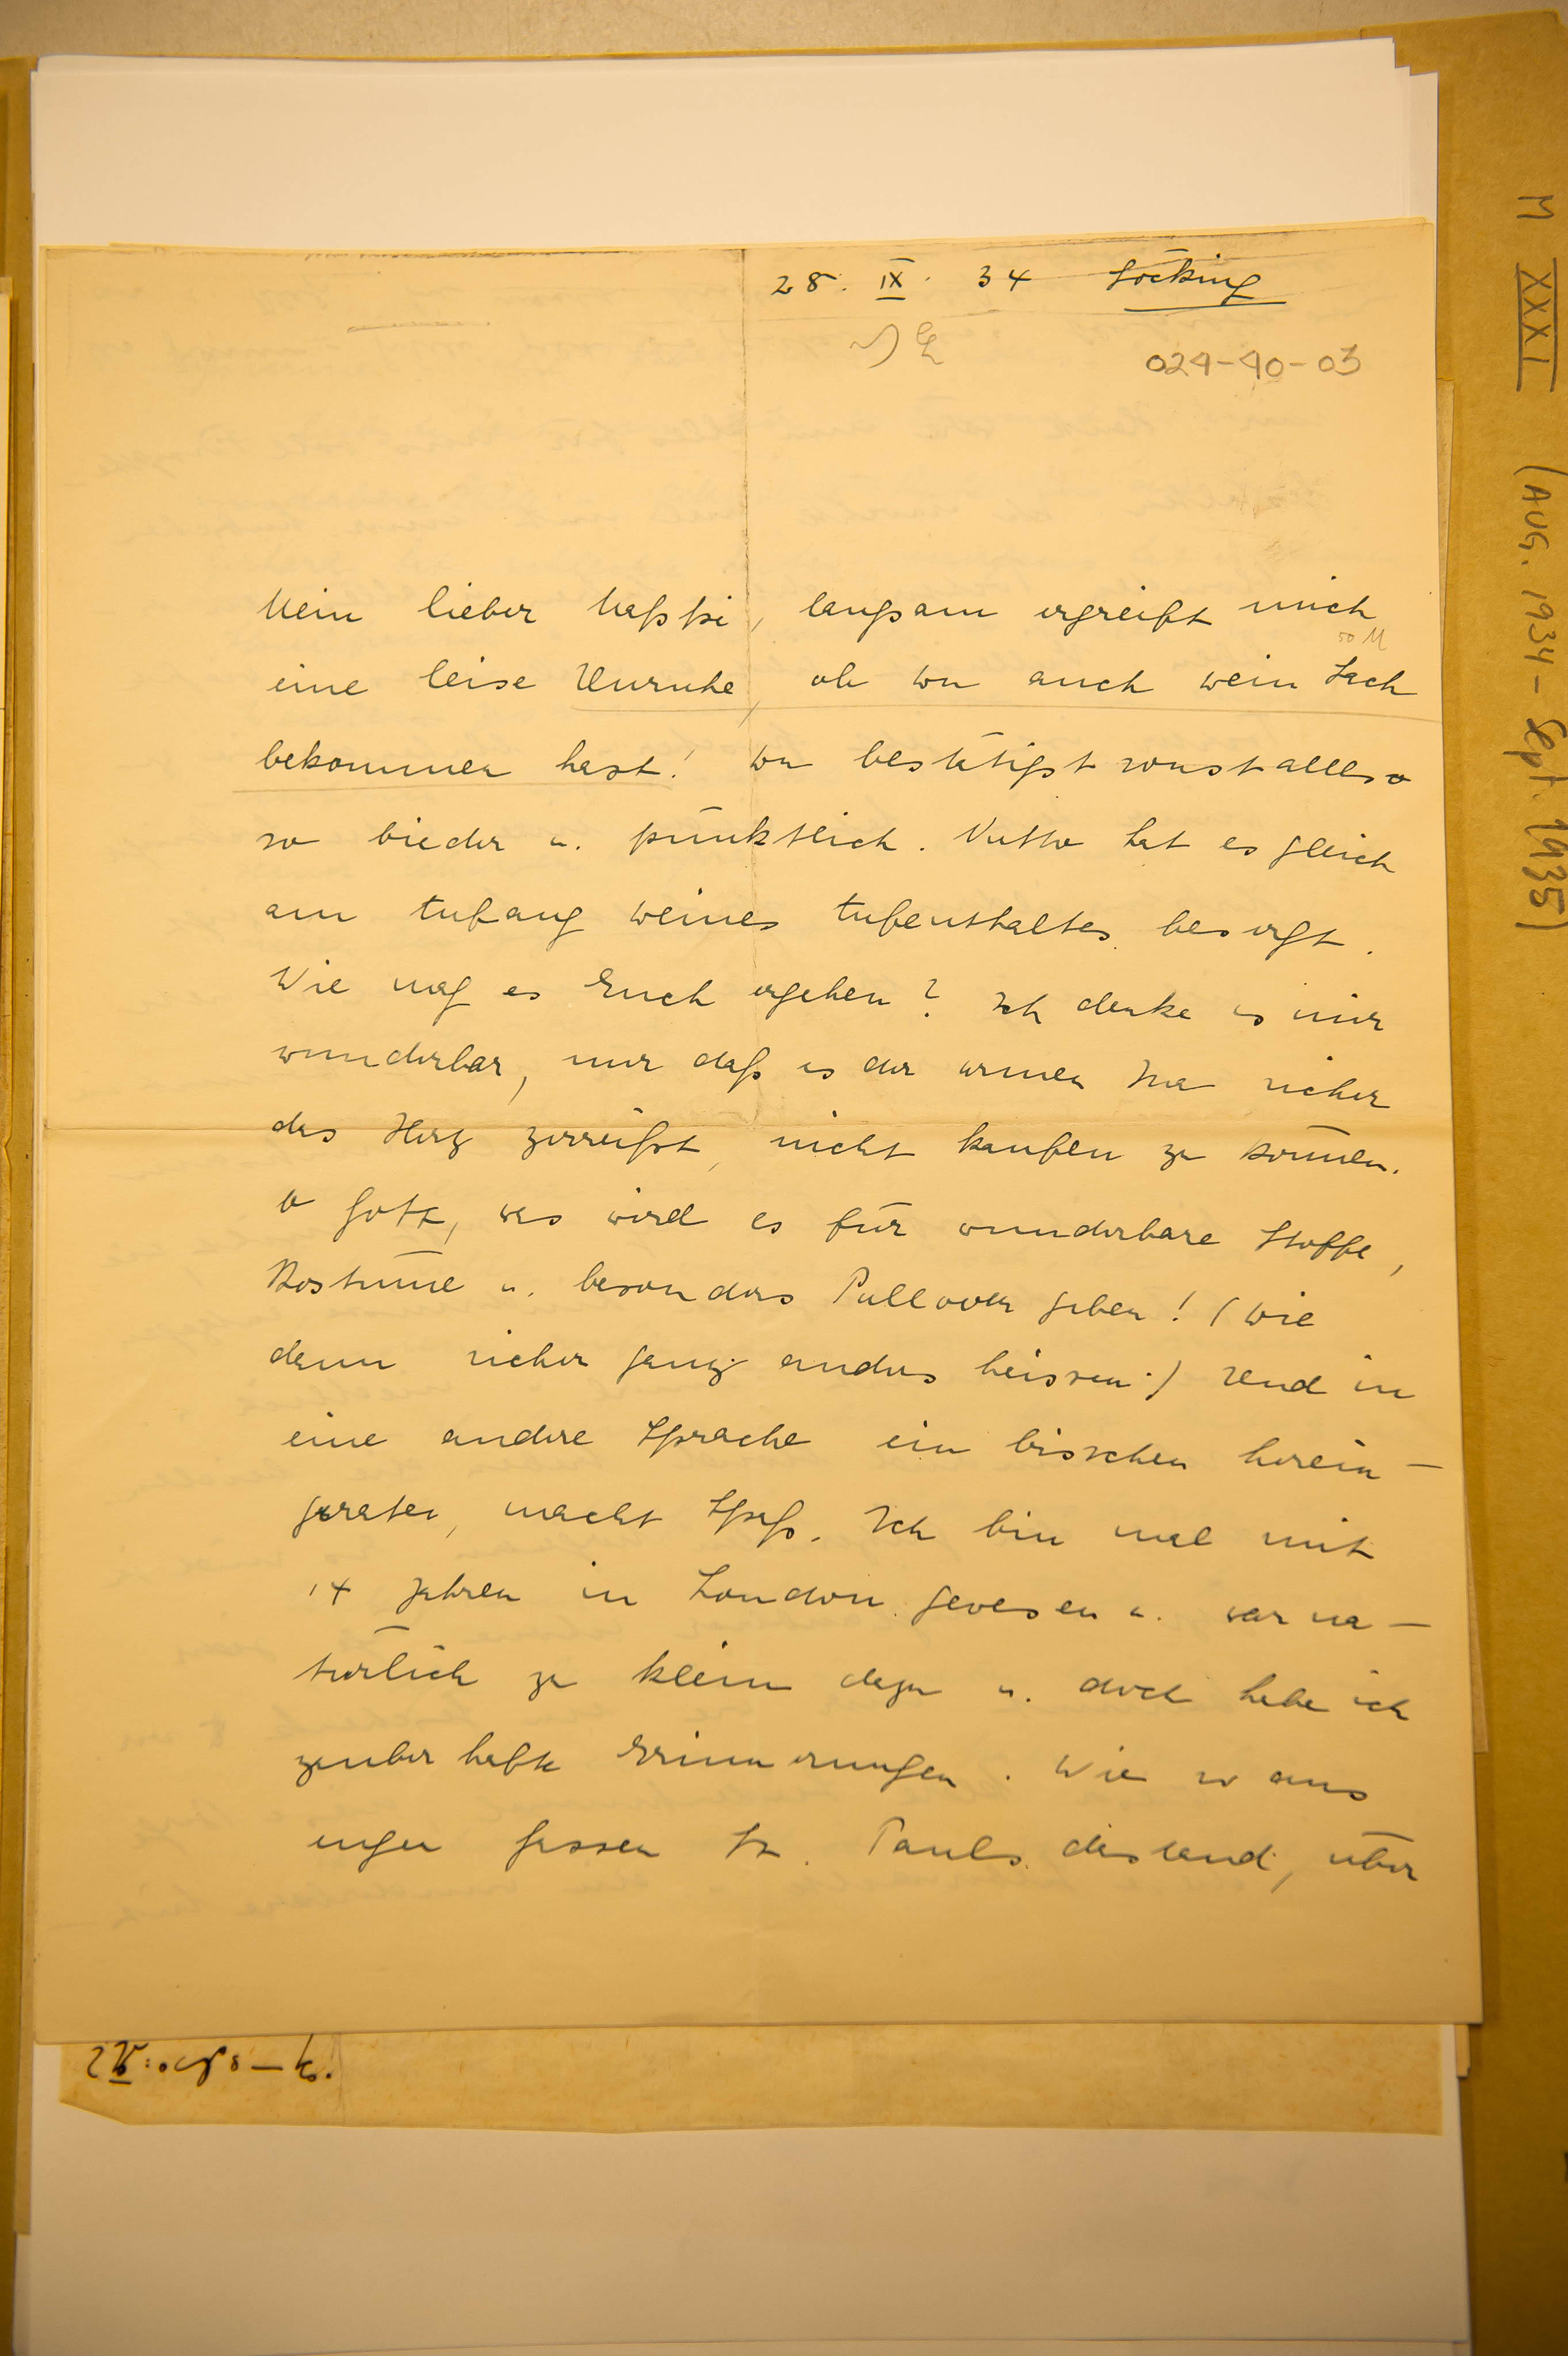 28. IX. 34 Söcking
024-40-03
Mein lieber Maßki, langsam ergreift mich
50 M
eine leise Unruhe, ob Du auch Dein Sach
bekommen hast! Du bestätigst sonst alles
so bieder u. pünktlich. Mutto hat es gleich
am Anfang Deines Aufenthaltes besorgt.
Wie mag es Euch ergehen? Ich denke es mir
wunderbar, nur daß es der armen Ina sicher
das Herz zerreißt, nicht kaufen zu können.
O Gott, was wird es für wunderbare Stoffe,
Kostüme u. besonders Pullover geben! (Die
dann sicher ganz anders heissen.) Und in
eine andere Sprache ein bisschen herein-
geraten, macht Spaß. Ich bin mal mit
14 Jahren in London gewesen u. war na-
türlich zu klein dazu u. doch habe ich
zauberhafte Erinnerungen. Wie so aus
engen Gassen St. Pauls dastand, über
M XXXI (AUG. 1934 - Sept. 1935)